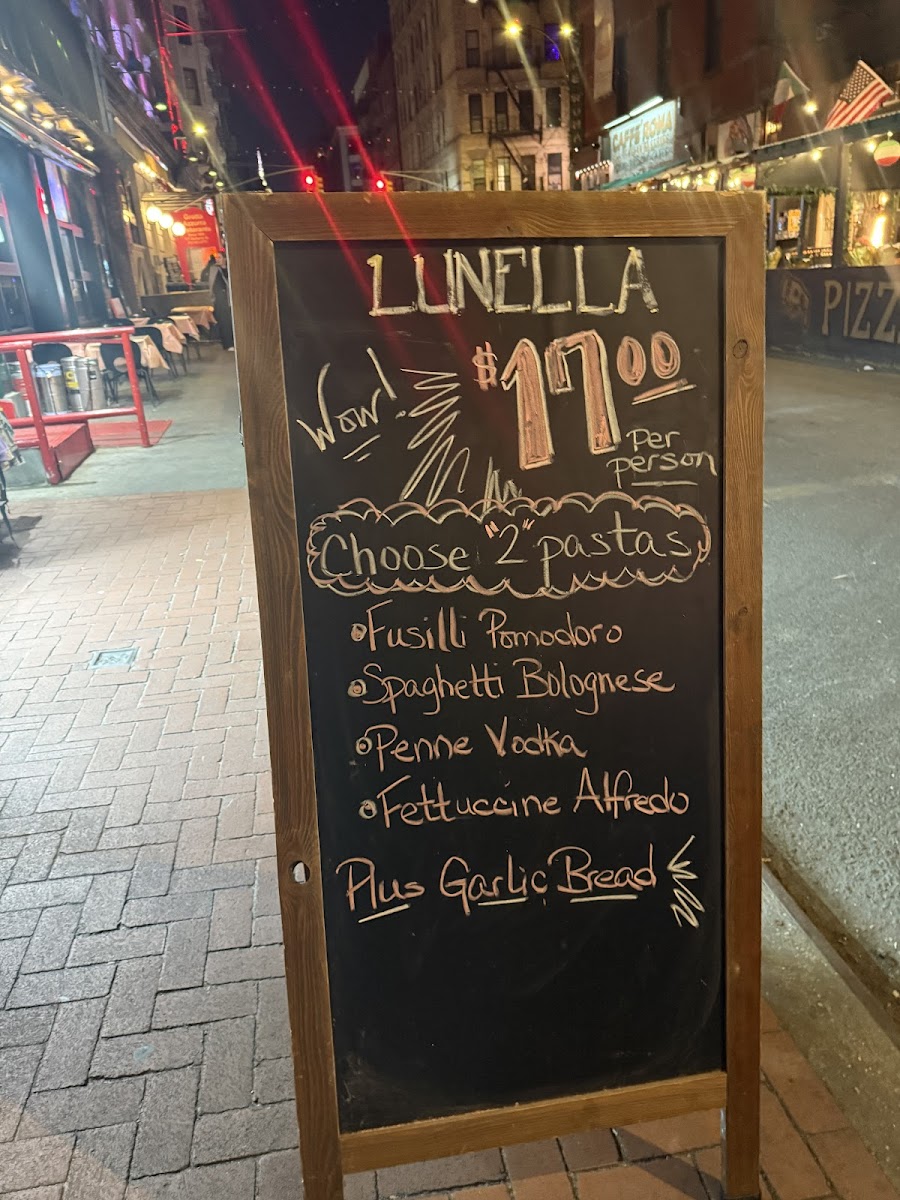 CAFFE ROMA
PIZZ
LUNELLA
Wow!
$17.00
per
person
Choose "2" pastas
Fusilli Pomodoro
Spaghetti Bolognese
Penne Vodka
Fettuccine Alfredo
Plus Garlic Bread